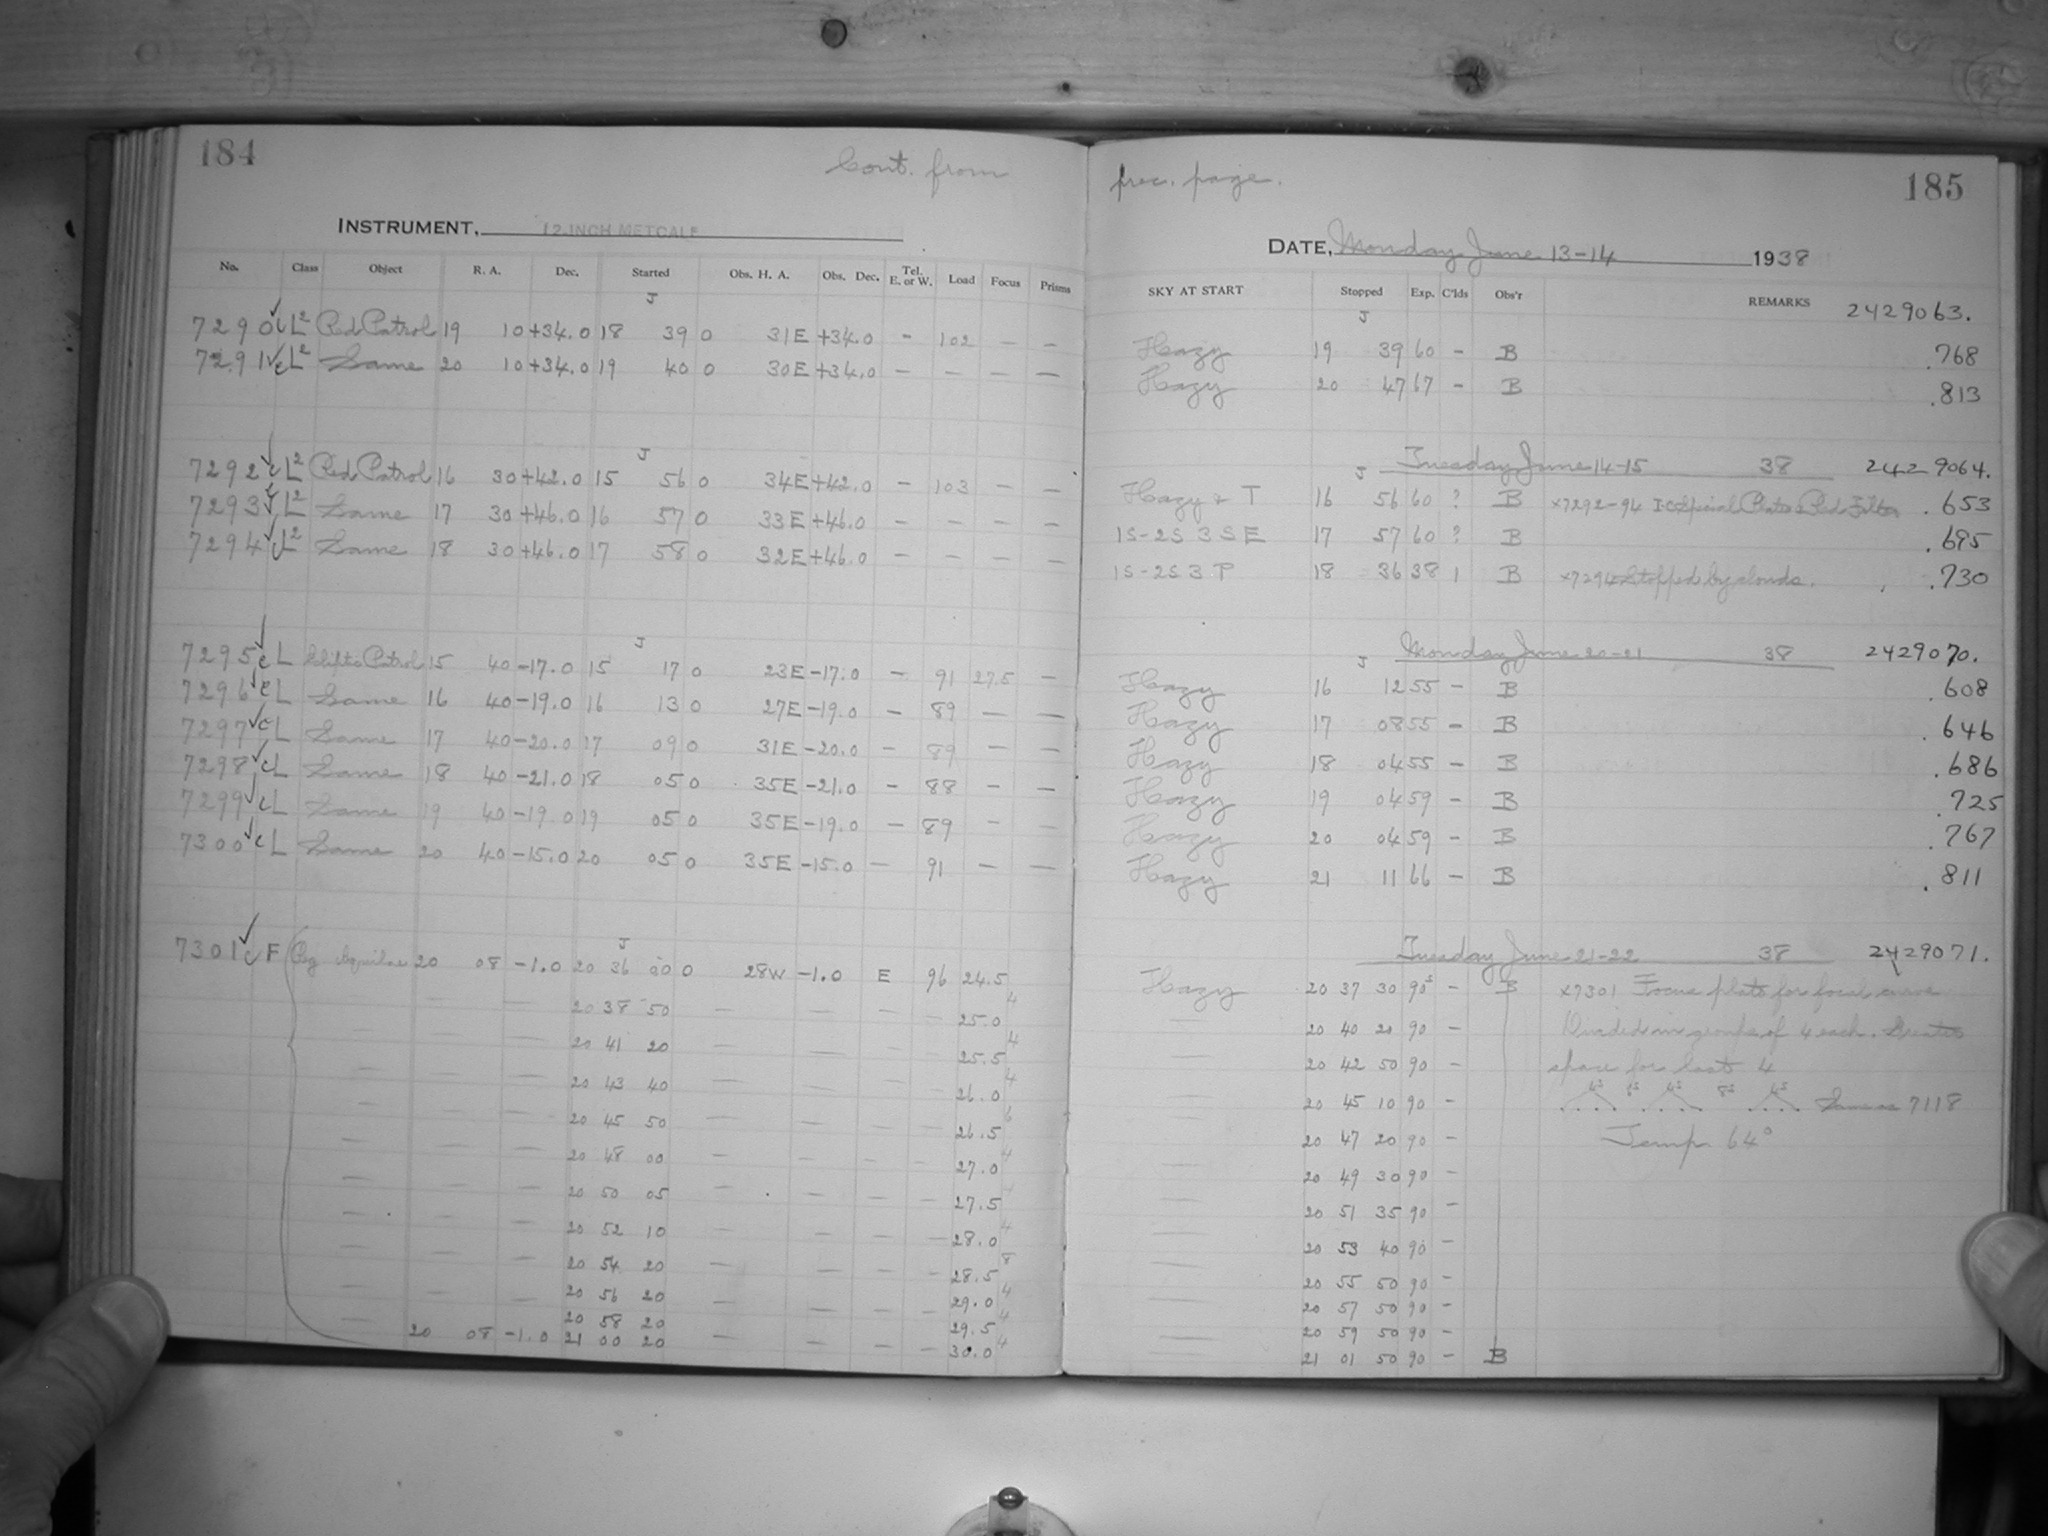 184
Cont. from
INSTRUMENT, 12-INCH METCALF
No. Class Object R. A. Dec. Started Obs. H. A. Obs. Dec. Tel. E. or W. Load Focus Prisms
J
7290 c L² Red Patrol 19 10 +34.0 18 39 0 31E +34.0 - 102 - -
7291 c L² Same 20 10 +34.0 19 40 0 30E +34.0 - - - -
J
7292 c L² Red Patrol 16 30 +42.0 15 56 0 34E +42.0 - 103 - -
7293 c L² Same 17 30 +46.0 16 57 0 33E +46.0 - - - -
7294 c L² Same 18 30 +46.0 17 58 0 32E +46.0 - - - -
J
7295 c L Ecliptic Patrol 15 40 -17.0 15 17 0 23E -17.0 - 91 27.5 -
7296 c L Same 16 40 -19.0 16 13 0 27E -19.0 - 89 - -
7297 c L Same 17 40 -20.0 17 09 0 31E -20.0 - 89 - -
7298 c L Same 18 40 -21.0 18 05 0 35E -21.0 - 88 - -
7299 c L Same 19 40 -19.0 19 05 0 35E -19.0 - 89 - -
7300 c L Same 20 40 -15.0 20 05 0 35E -15.0 - 91 - -
J
7301 c F Reg Aquilae 20 08 -1.0 20 36 00 0 28W -1.0 E 96 24.5
— — 20 38 50 — — — — 25.0 4
— — 20 41 20 — — — — 25.5 4
— — 20 43 40 — — — — 26.0 4
— — 20 45 50 — — — — 26.5 6
— — 20 48 00 — — — — 27.0 4
— — 20 50 05 — — — — 27.5 4
— — 20 52 10 — — — — 28.0 4
— — 20 54 20 — — — — 28.5 8
— — 20 56 20 — — — — 29.0 4
— — 20 58 20 — — — — 29.5 4
20 08 -1.0 21 00 20 — — — — 30.0 4
prec. page.
185
DATE, Monday June 13-14 1938
SKY AT START Stopped Exp. C'lds Obs'r REMARKS
J 2429063.
Hazy 19 39 60 - B .768
Hazy 20 47 67 - B .813
J Tuesday June 14-15 38 2429064.
Hazy & T 16 56 60 ? B x7292-94 I-C Special Plates & Red Filter .653
1S-2S 3 S E 17 57 60 ? B .695
1S-2S 3 P 18 36 38 1 B x7294 Stopped by clouds. .730
J Monday June 20-21 38 2429070.
Hazy 16 12 55 - B .608
Hazy 17 08 55 - B .646
Hazy 18 04 55 - B .686
Hazy 19 04 59 - B .725
Hazy 20 04 59 - B .767
Hazy 21 11 66 - B .811
Tuesday June 21-22 38 2429071.
Hazy 20 37 30 90ˢ - B x7301 Focus plate for focal curve
— 20 40 20 90 - Divided in groups of 4 each. Greater
— 20 42 50 90 - space for last 4
— 20 45 10 90 - .... .... .... Same as 7118
— 20 47 20 90 - Temp 64°
— 20 49 30 90 -
— 20 51 35 90 -
— 20 53 40 90 -
— 20 55 50 90 -
20 57 50 90 -
— 20 59 50 90 -
— 21 01 50 90 - B